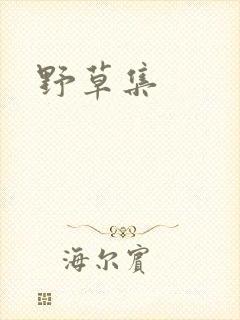 野草集
海尔宾